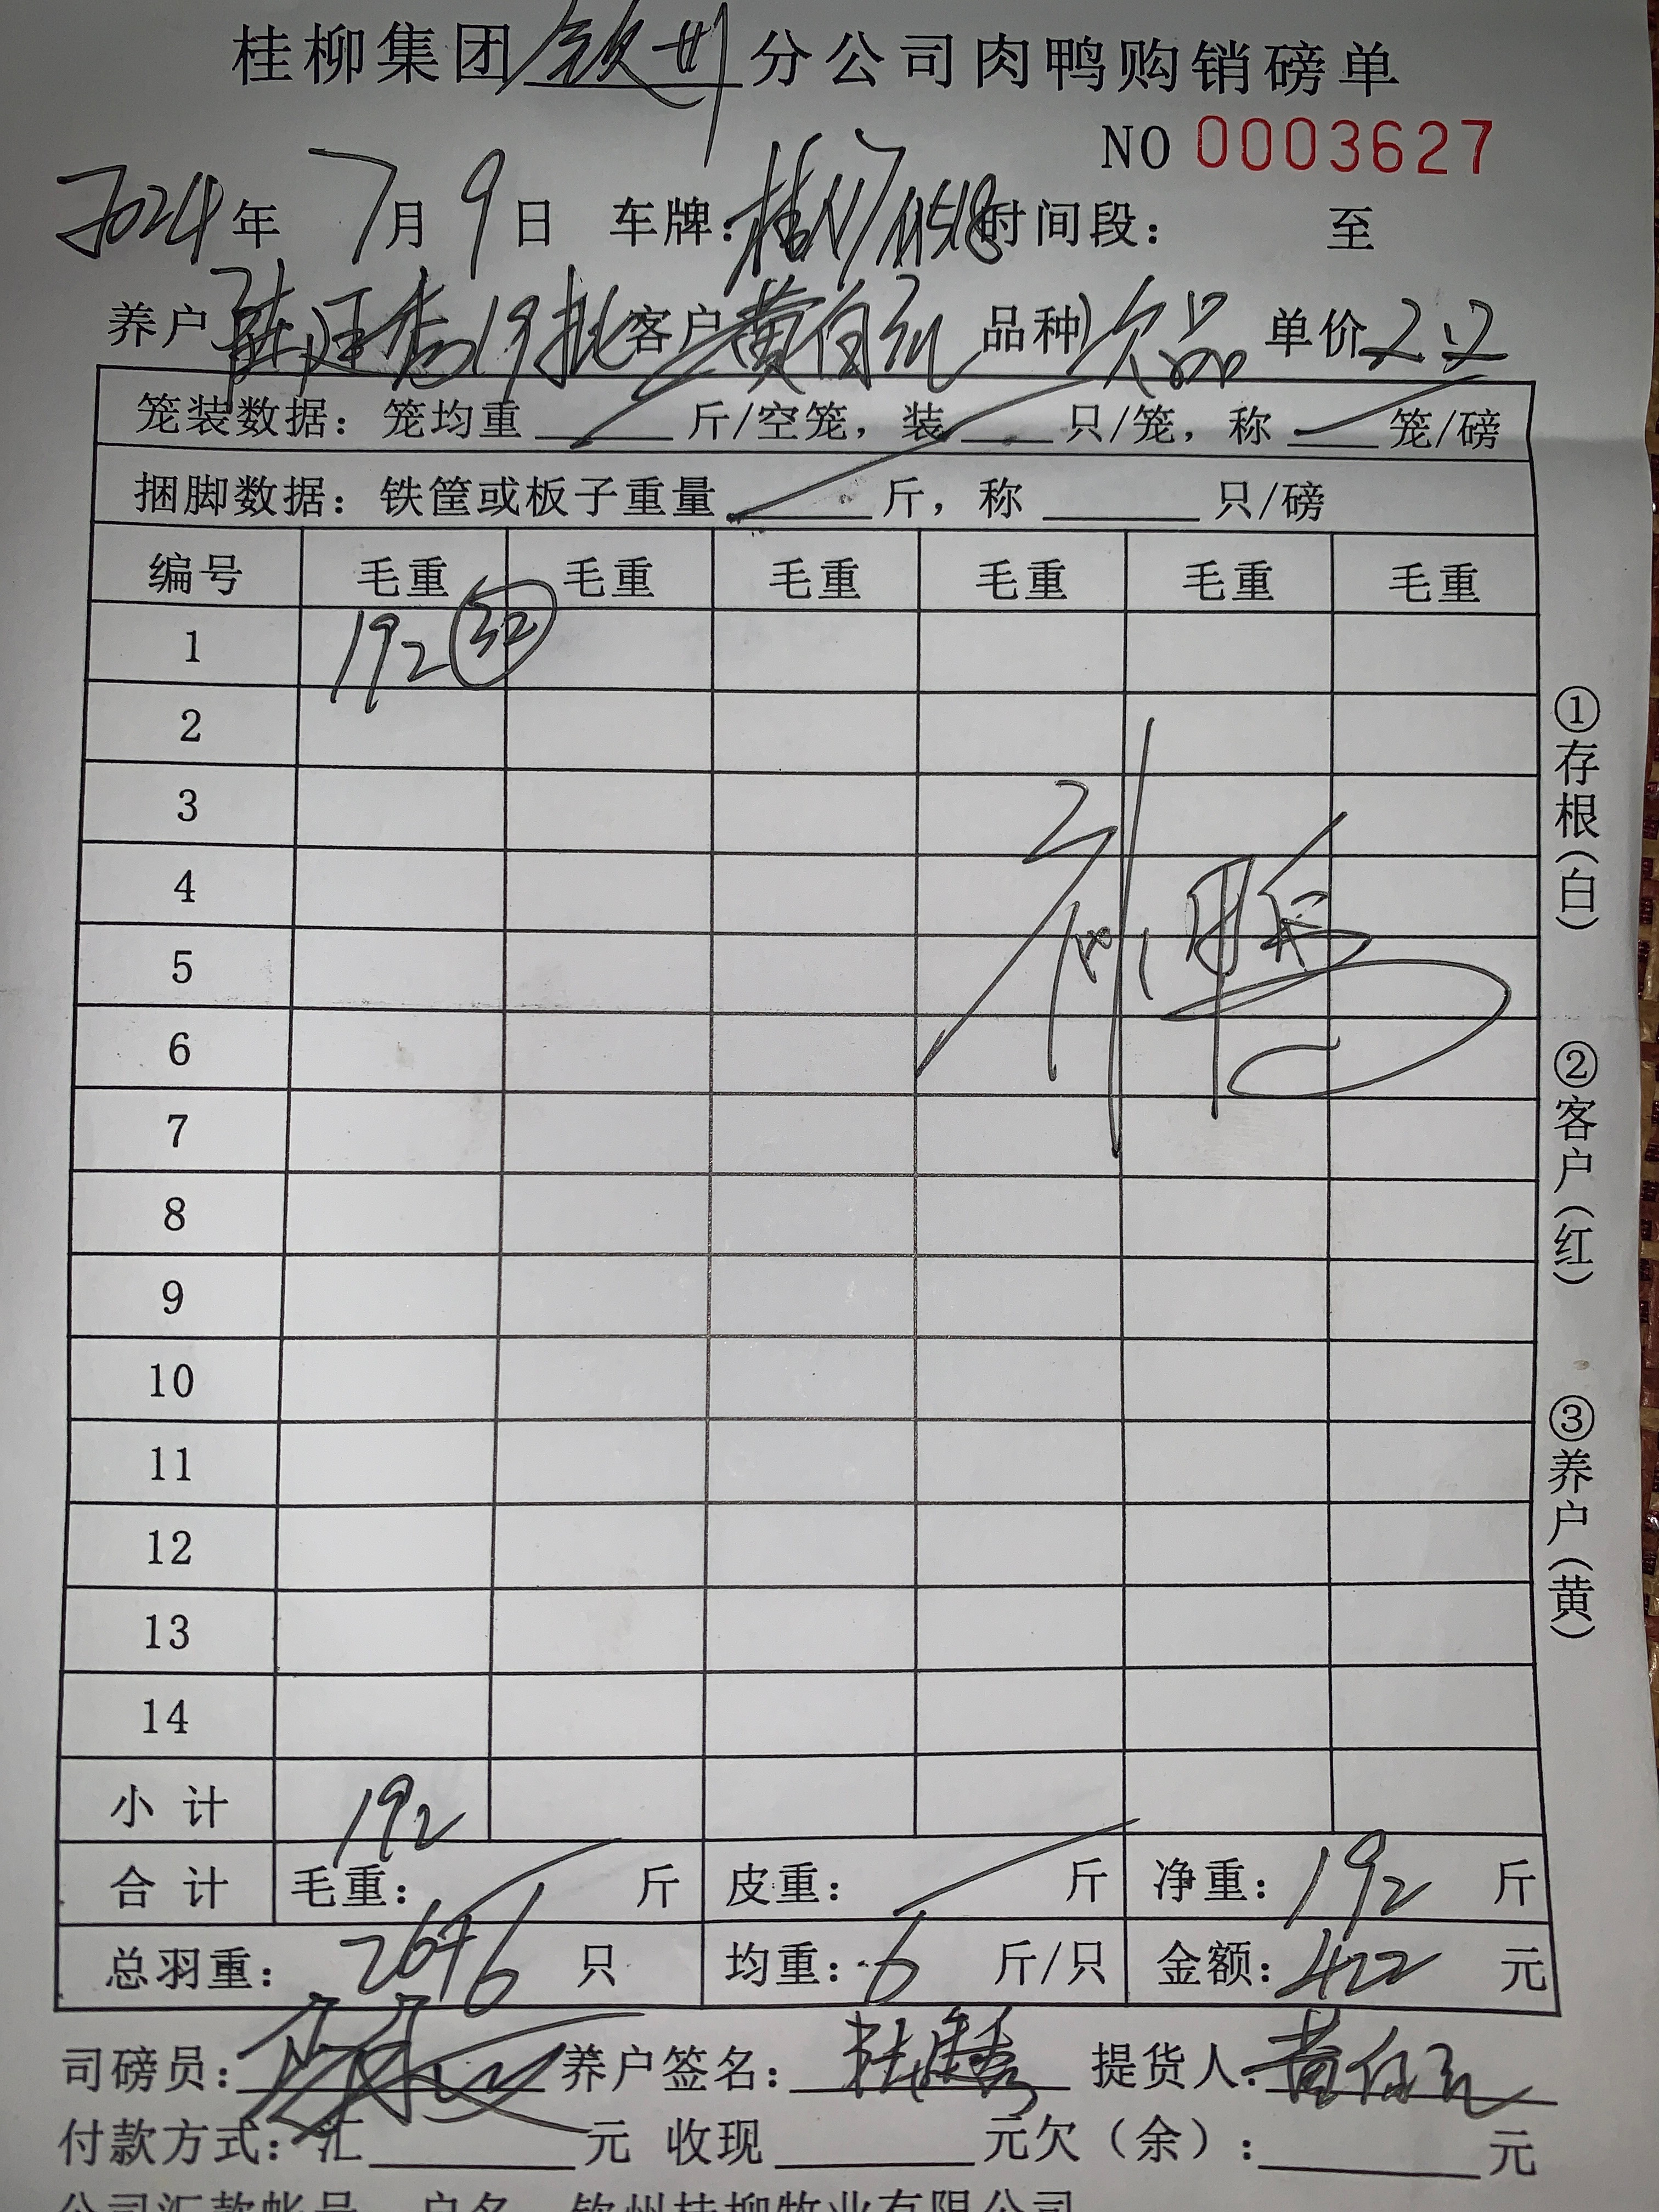 桂柳集团钦州分公司肉鸭购销磅单
NO 0003627
2024年 7月 9日 车牌: 时间段: 至
养户 19批 客户 黄伯 品种 次品 单价 2.2
笼装数据: 笼均重 斤/空笼, 装 只/笼, 称 笼/磅
捆脚数据: 铁筐或板子重量 斤, 称 只/磅
编号 毛重 毛重 毛重 毛重 毛重 毛重
1 192 32
2
3
4
5
6
7
8
9
10
11
12
13
14
小计 192
合计 毛重: 斤 皮重: 斤 净重: 192 斤
总羽重: 只 均重: 6 斤/只 金额: 422 元
司磅员: 养户签名: 提货人: 黄伯
付款方式: 汇 元 收现 元欠(余): 元
公司汇款帐号 户名 钦州桂柳牧业有限公司
①存根(白)
②客户(红)
③养户(黄)